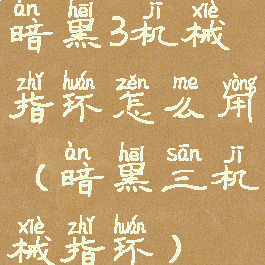 àn hēi jī xiè
暗黑3机械
zhǐ huán zěn me yòng
指环怎么用
àn hēi sān jī
（暗黑三机
xiè zhǐ huán
械指环）